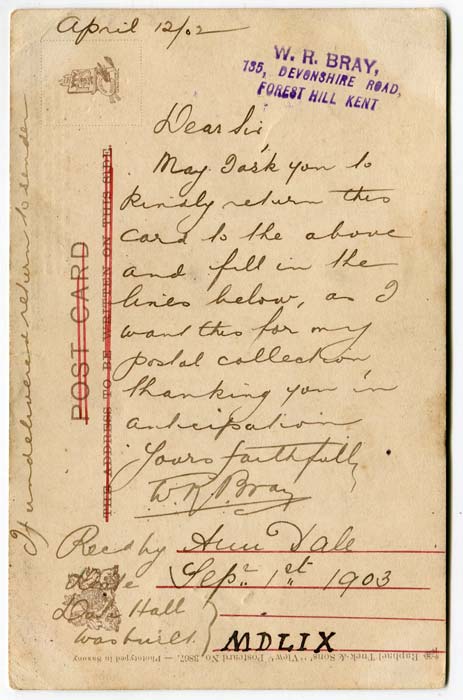 April 12/02
W. R. BRAY,
135, DEVONSHIRE ROAD,
FOREST HILL KENT
Dear Sir,
May I ask you to
kindly return this
card to the above
and fill in the
lines below, as I
want this for my
postal collection
thanking you in
anticipation
Yours faithfully
W. R. Bray
If undelivered return to sender
POST CARD
THE ADDRESS TO BE WRITTEN ON THIS SIDE
Recd by Ann Dale
Date Sepr. 1st 1903
Date Hall
was built } MDLIX
Raphael Tuck & Sons' "View" Postcard No. 3867. — Phototyped in Saxony